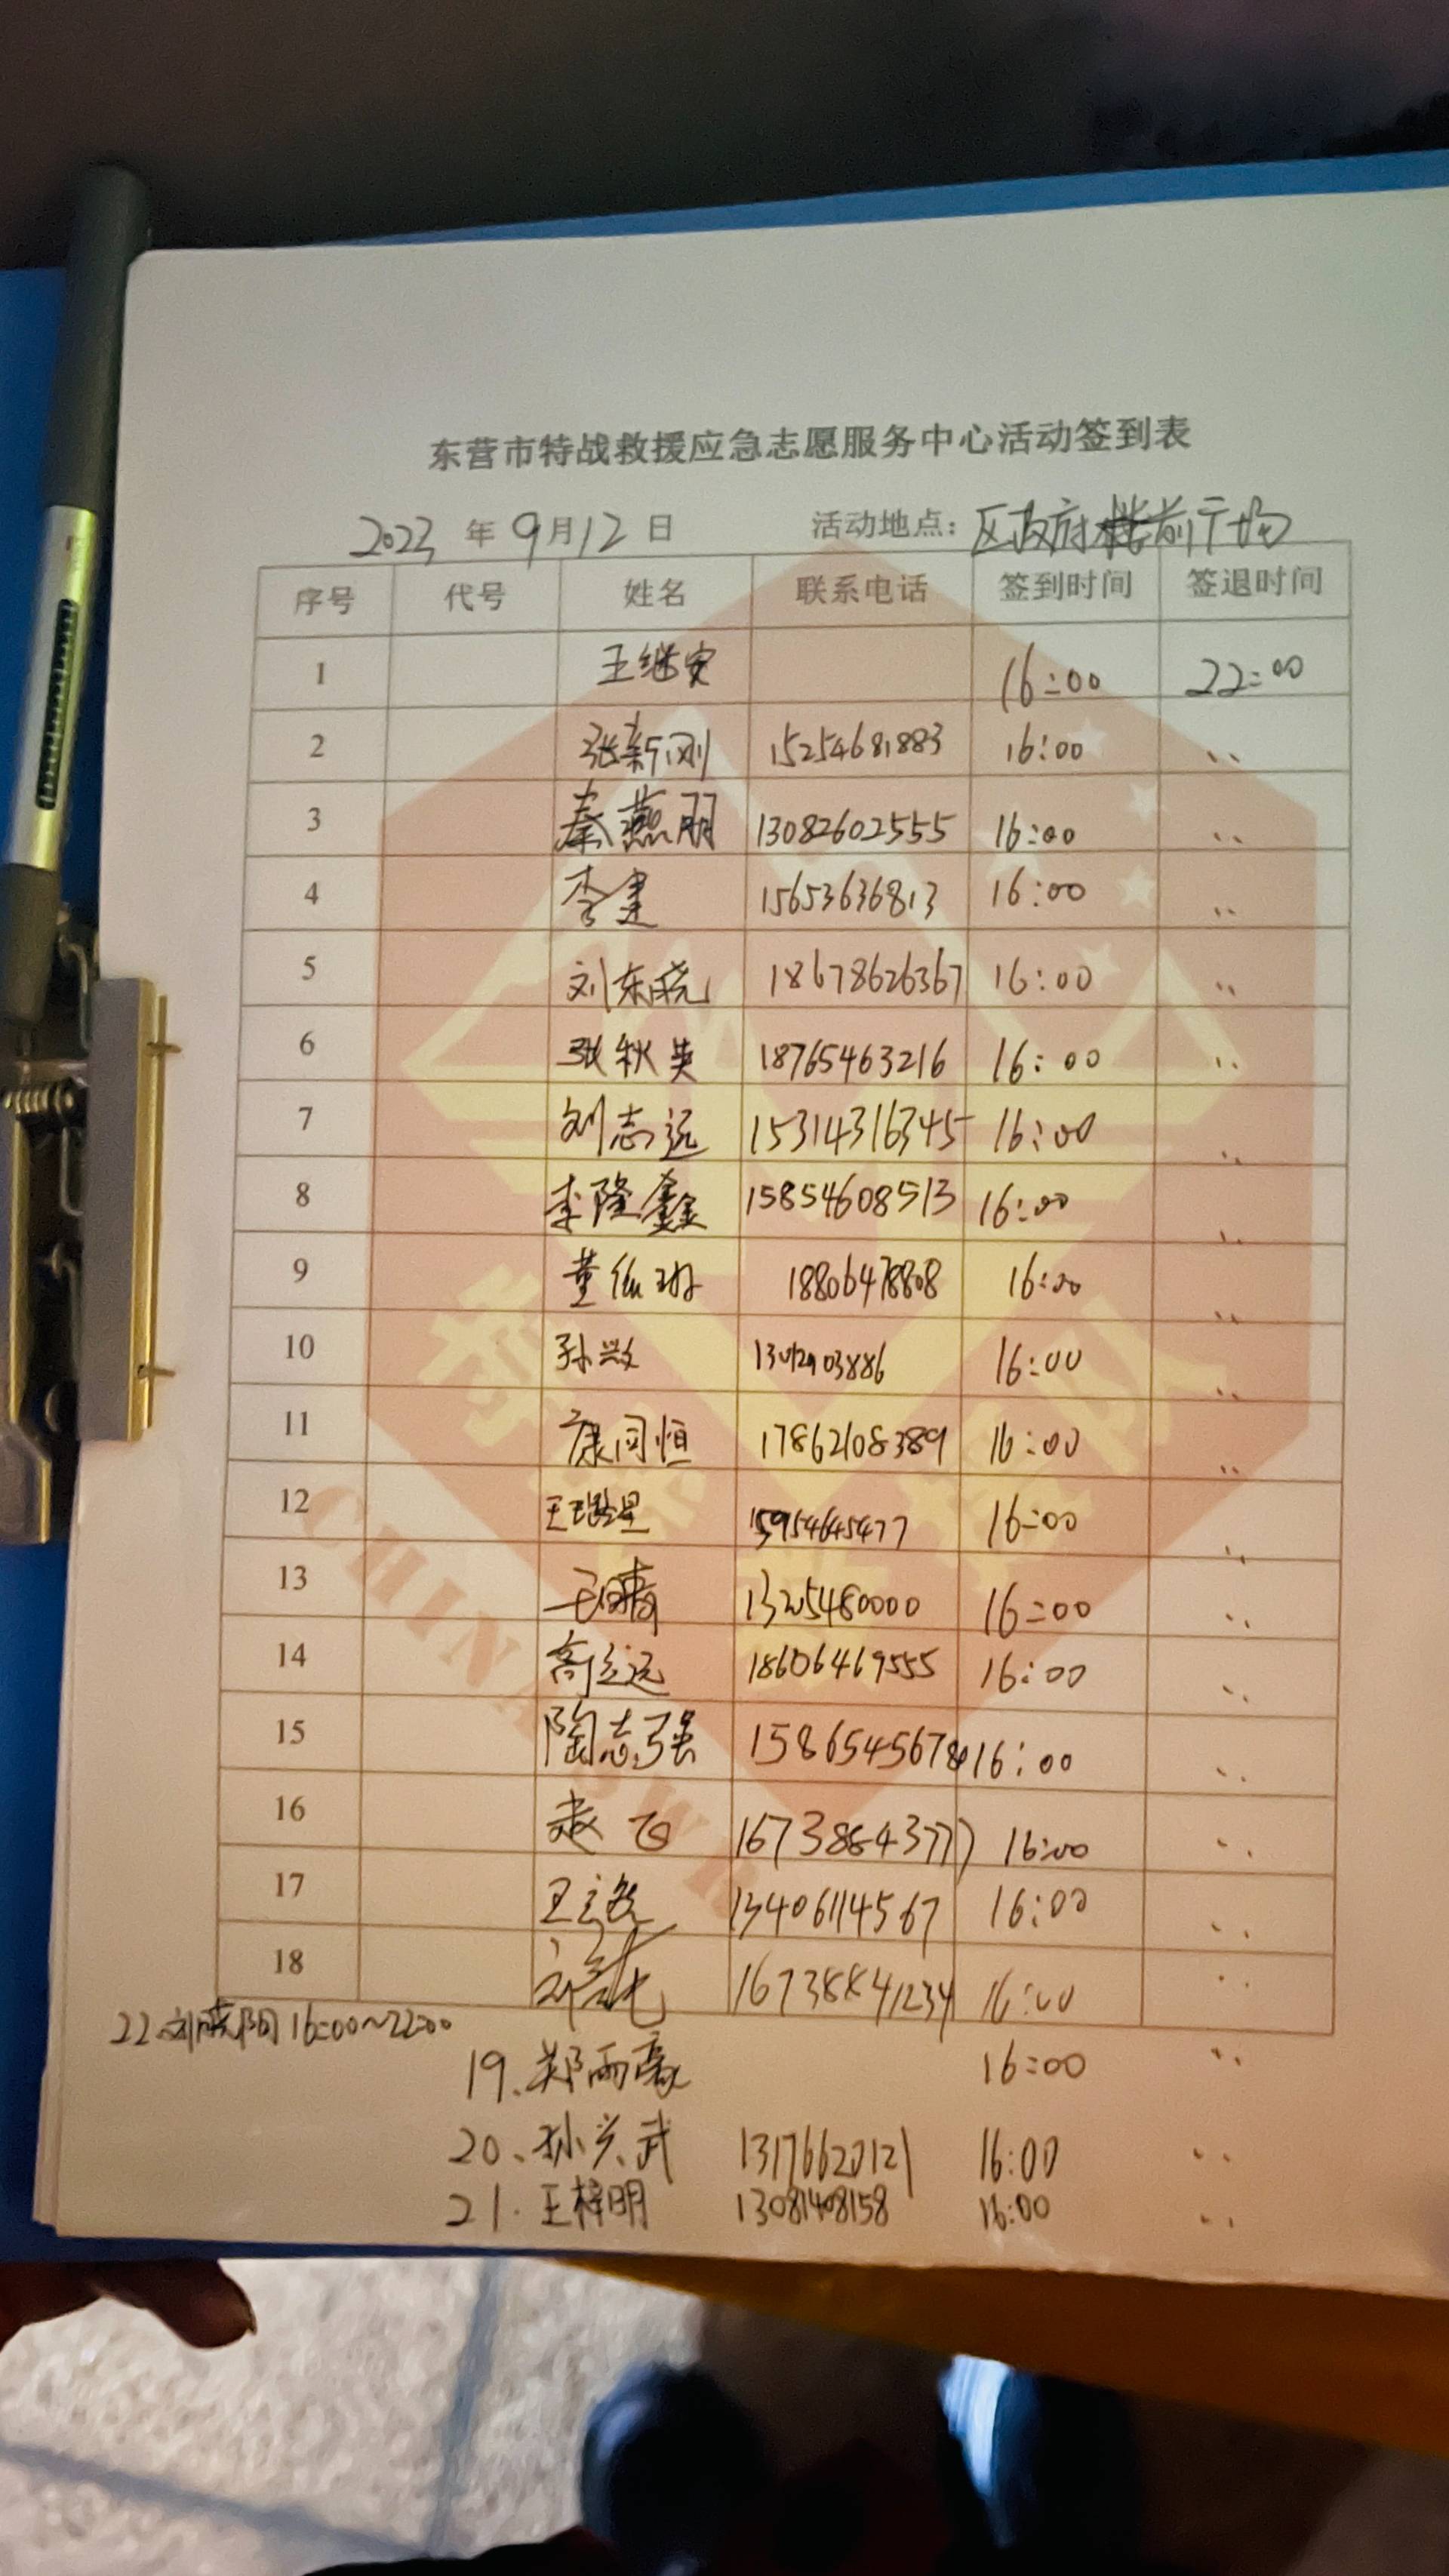 东营市特战救援应急志愿服务中心活动签到表
2023 年 9月12 日 活动地点: 区政府楼前广场
序号 代号 姓名 联系电话 签到时间 签退时间
1 王继安 16:00 22:00
2 张新刚 15254681883 16:00 ..
3 秦燕朋 13082602555 16:00 ..
4 李建 15653636813 16:00 ..
5 刘东晓 18678626367 16:00 ..
6 张秋英 18765463216 16:00 ..
7 刘志远 15314316345 16:00 ..
8 李隆鑫 15854608513 16:00 ..
9 董 18806478808 16:00 ..
10 孙 16:00 ..
11 康同恒 17862108389 16:00 ..
12 王 15954645477 16:00 ..
13 13205480000 16:00 ..
14 高立远 18606469555 16:00 ..
15 陶志强 16:00 ..
16 赵飞 16738843777 16:00 ..
17 王 13406114567 16:00 ..
18 16738841234 16:00 ..
22.刘晓阳 16:00~22:00
19.郑雨豪 16:00 ..
20、孙兴武 13176620121 16:00 ..
21.王梓明 13081408158 16:00 ..
CHINA SW